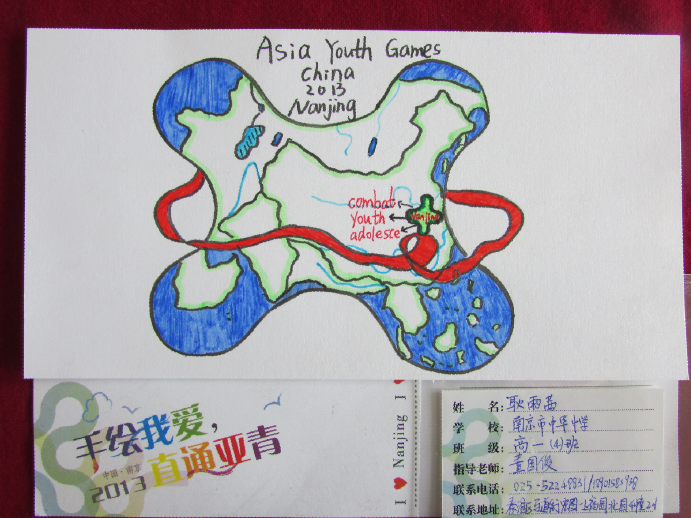 Asia Youth Games
China
2013
Nanjing
combat
youth
adolesce
Nanjing
手绘我爱,
直通亚青
2013
I ♥ Nanjing I ♥
姓 名:耿雨菡
学 校:南京市中华中学
班 级:高一(4)班
指导老师:董国俊
联系电话:025-52248831/
联系地址: